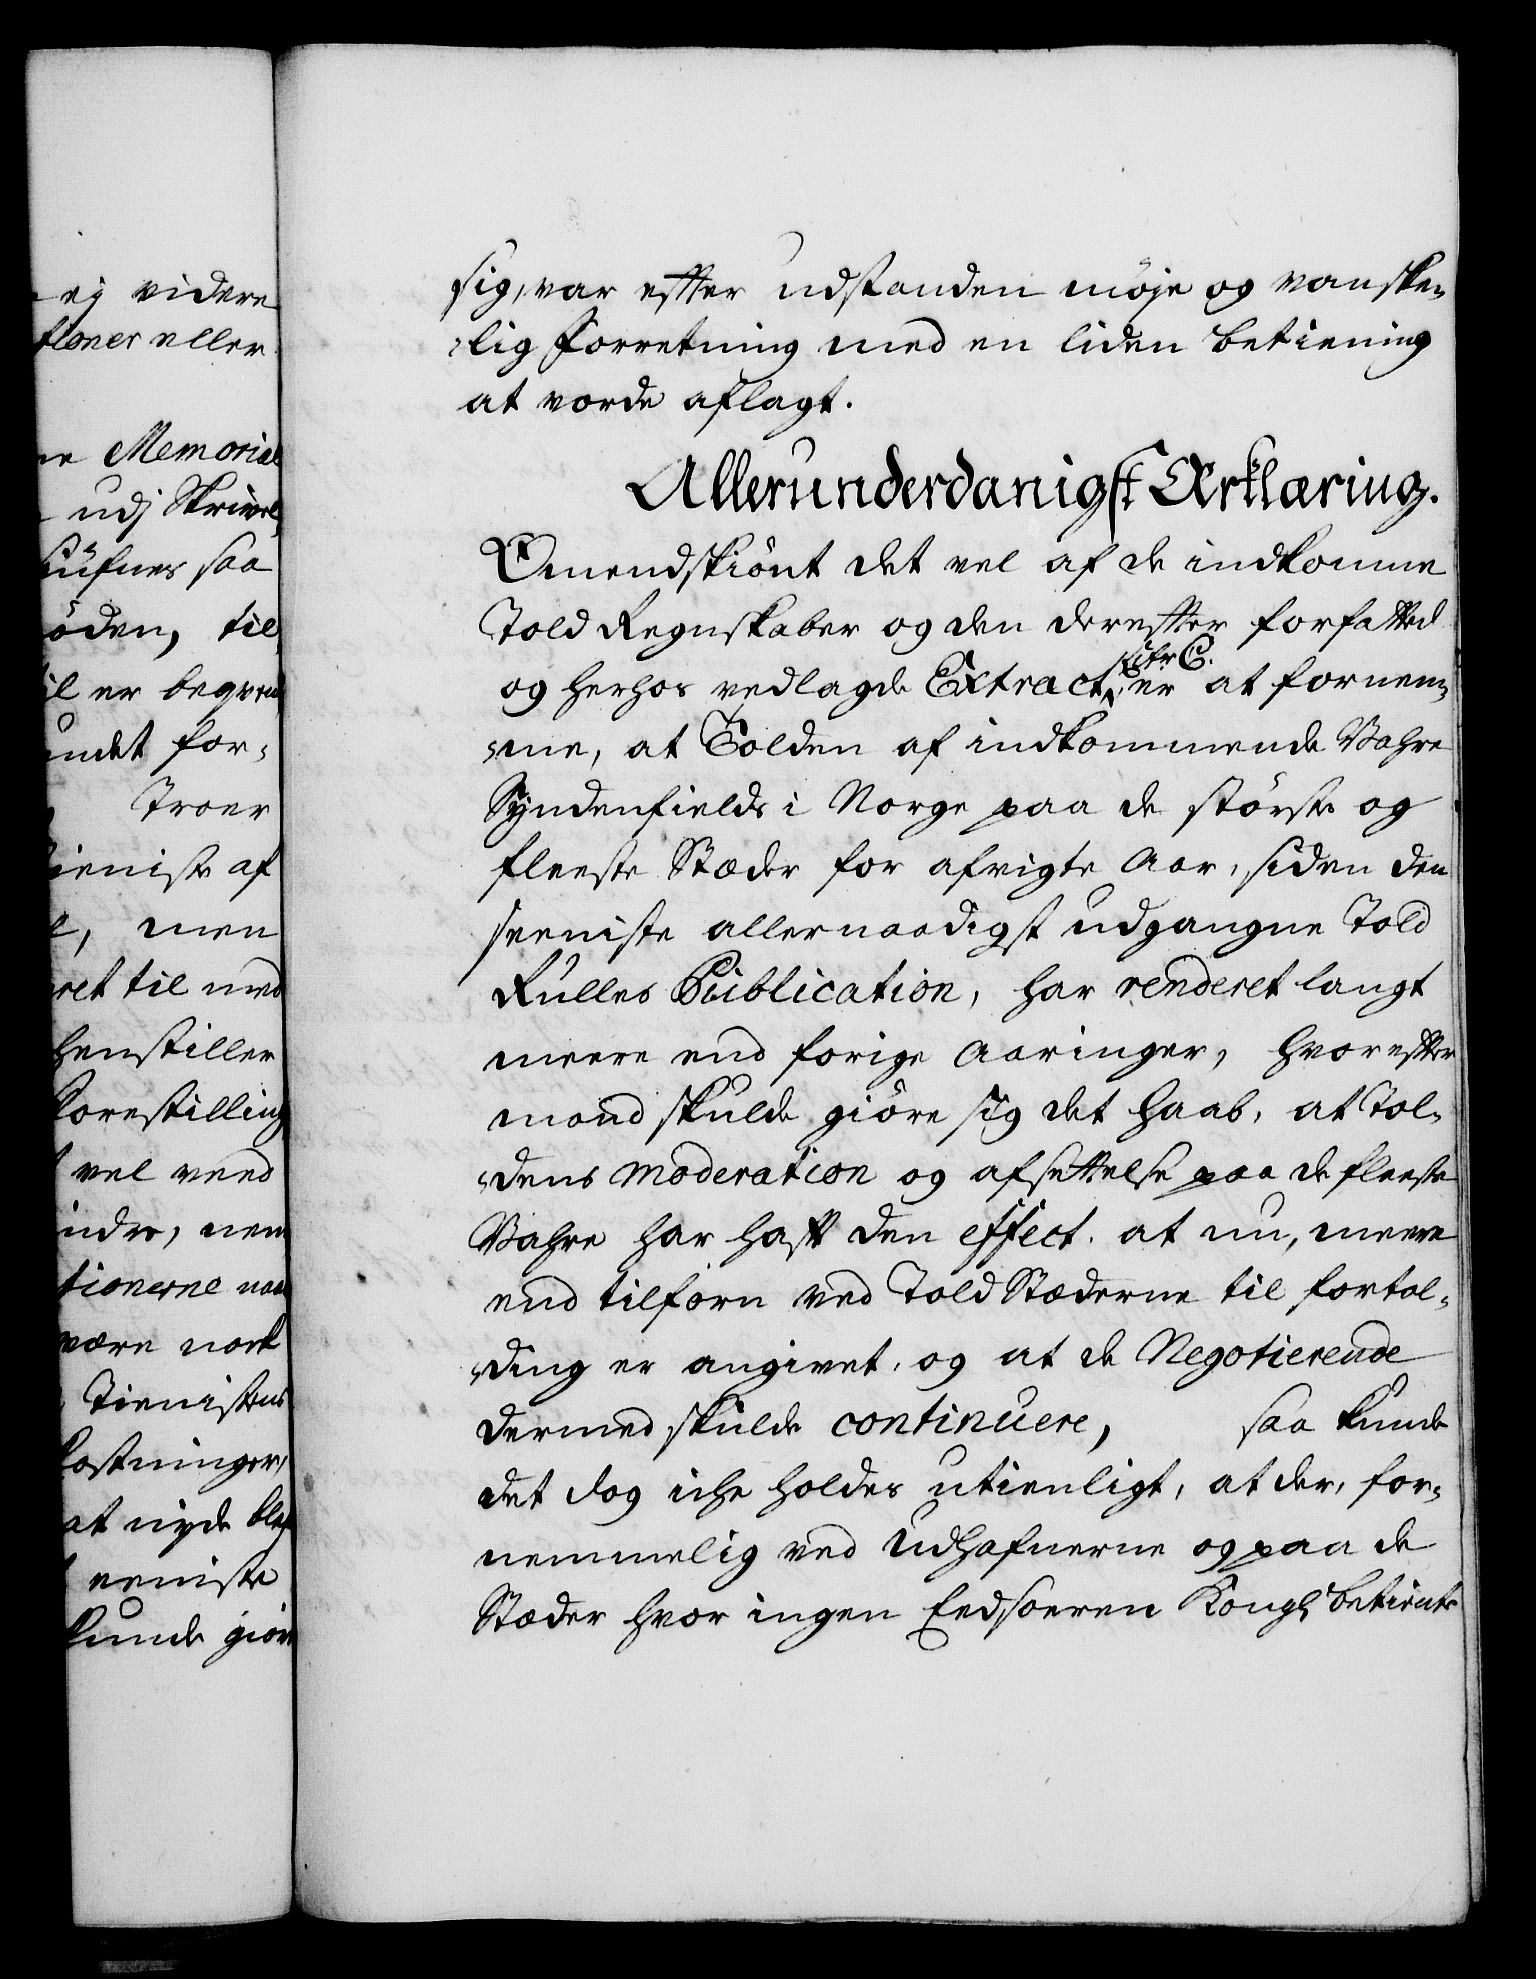 ej videre
tioner eller
Memorial
udj Skrivel
saa
öden, til
il er beqvem
undet for-
Troer
ieniste af
men
ret til med
henstiller
Forestilling
vel veed
indre, nem
tionerne
være nock
Tienistens
kostninger,
at nyde
eeniste
kunde giöre
sig, var efter udstanden möje og vanske-
-lig Forretning med en liden betiening
at vorde aflagt.
Allerunderdanigst Erklæring.
Omendskiönt det vel af de indkomne
Told Regnskaber og den derefter forfatted
Litr C.
og herhos vedlagde Extract, er at fornem-
-me, at Tolden af indkommende Vahre
Syndenfields i Norge paa de störste og
fleeste Stæder for afvigte Aar, siden den
seeniste allernaadigst udgangne Told
Rulles Publication, har renderet langt
meere end forige Aaringer, hvorefter
mand skulde giöre sig det haab, at Tol-
-dens moderation og afsettelse paa de fleeste
Vahre har haft den effect. at nu, meere
end tilforn ved Told Stæderne til fortol-
-ding er angivet, og at de Negotierende
dermed skulde continuere, saa kunde
det dog iche holdes utienligt, at der, for-
nemmelig ved Udhafnerne og paa de
Stæder hvor ingen Eedsoeren Kongl. betiente